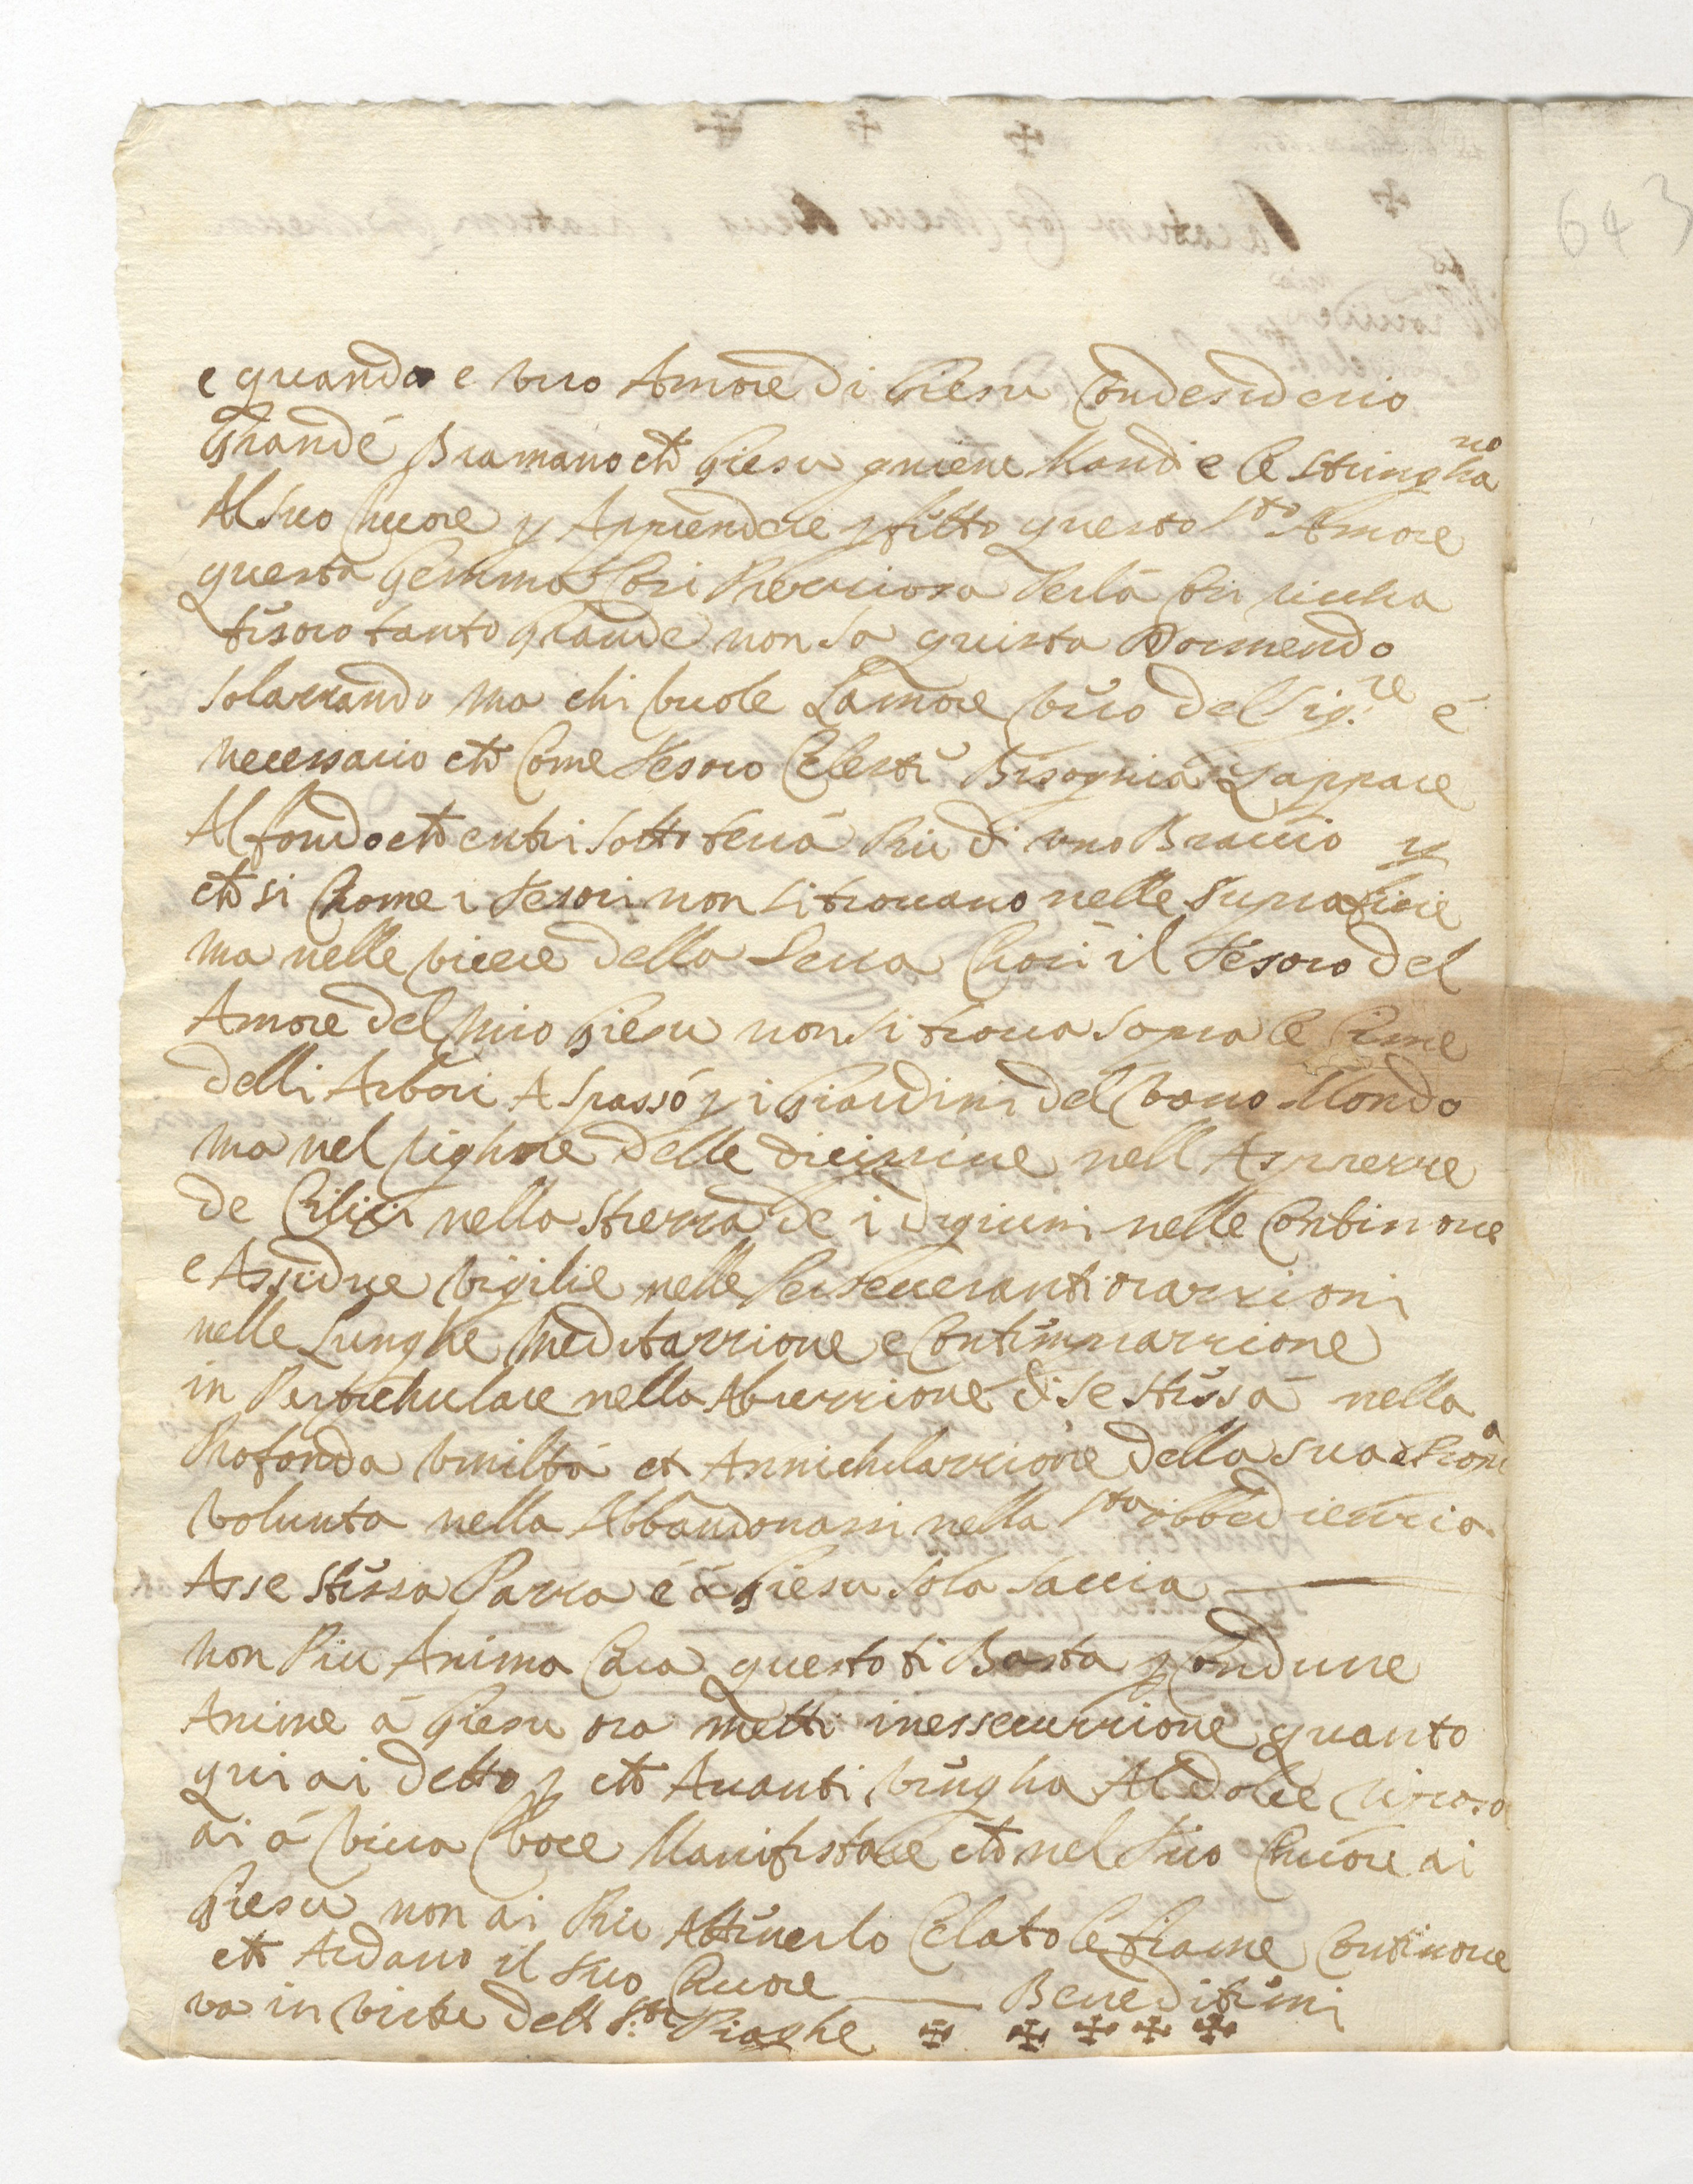 e quando e vero Amore di Giesu Condesiderio
Grande Bramano ch Giesu gniene Mandi e le stringhano
Al suo Chuore p Apprendere p fetto questo sto Amore
questa Gemma Cosi Precciosa Perla Cosi riccha
tesoro tanto Grande non sa quista Dormendo
solarzando ma chi vuole Lamore vero del Sig.re é
necessario ch Come tesoro Celeste Bisognia Zappare
Al fondo ch entri sotto terra Piu di uno Braccio p
ch si Chome i tesori non si trovano nelle superaficie
ma nelle vicere della Terra Chosi il tesoro del
Amore del mio Giesu non si trova sopra le Cime
delli Arbori A spasso p i Giardini del vano Mondo
ma nel righore delle diciprine nell Asprezze
de Cilici nella strezza de i digiuni nelle Continove
e Assidue vigilie nelle Perseveranti orazzioni
nelle Lunghe Meditazzione e Contempriazzione
in Perticchulare nella Abnezzione di se stessa nella
Profonda vmilta et Annichilazzione della sua Propia
volunta nella Abbandonarsi nella sta obbedienzia
Asse stessa Pazza é á Giesu sola saccia
non Piu Anima Cara questo ti Basta p Condurre
Anime á Giesu ora metti inessecuzzione quanto
qui ai detto p ch Avanti vengha Al dolce riposo
ai á viva voce Manifestare ch nel suo Chuore ai
Giesu non ai Piu Attenerlo Celato le fiame Continove
ch Ardano il suo Chuore Beneditemi
va in virtu dell S.te Piaghe ✠ ✠ ✠ ✠ ✠
643